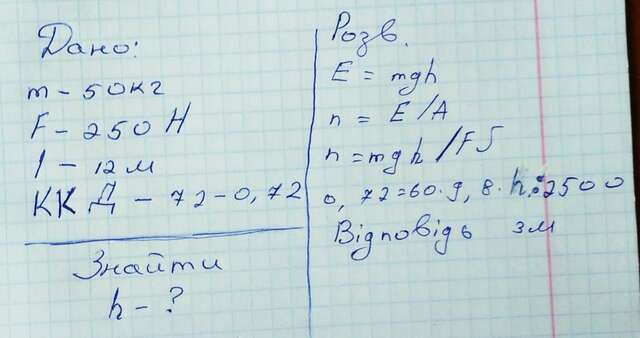 Дано:
m - 50кг
F - 250 Н
l - 12м
ККД - 72 - 0,72
Знайти
h - ?
Розв.
E = mgh
n = E/A
n = mgh/FS
0,72=60·9,8·h:2500
Відповідь 3м